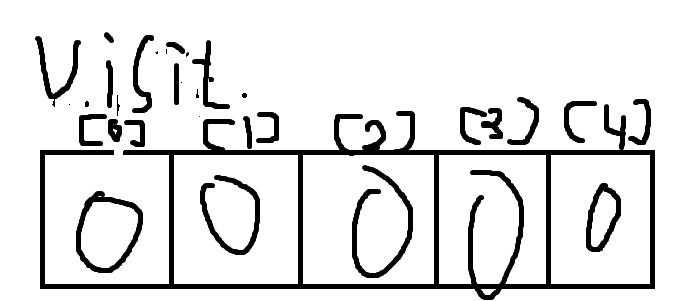 Visit.
[0] [1] [2] [3] [4]
0 0 0 0 0